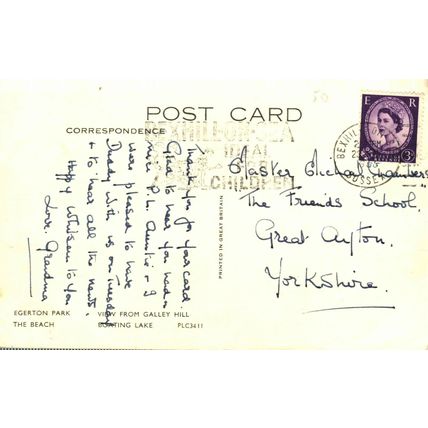 POST CARD
CORRESPONDENCE
BEXHILL-ON-SEA
IDEAL
CHILDREN
E R
3D
BEXHILL-ON
SUSSEX
Thank you for your card.
Glad to hear you had a
nice P.H. Auntie & I
were pleased to have
Daddy with us on Tuesday
& to hear all the news.
Happy Whitsun to you
Love. Grandma
PRINTED IN GREAT BRITAIN
Master Michael Chambers
The Friends School,
Great Ayton,
Yorkshire.
EGERTON PARK VIEW FROM GALLEY HILL
THE BEACH BOATING LAKE PLC3411